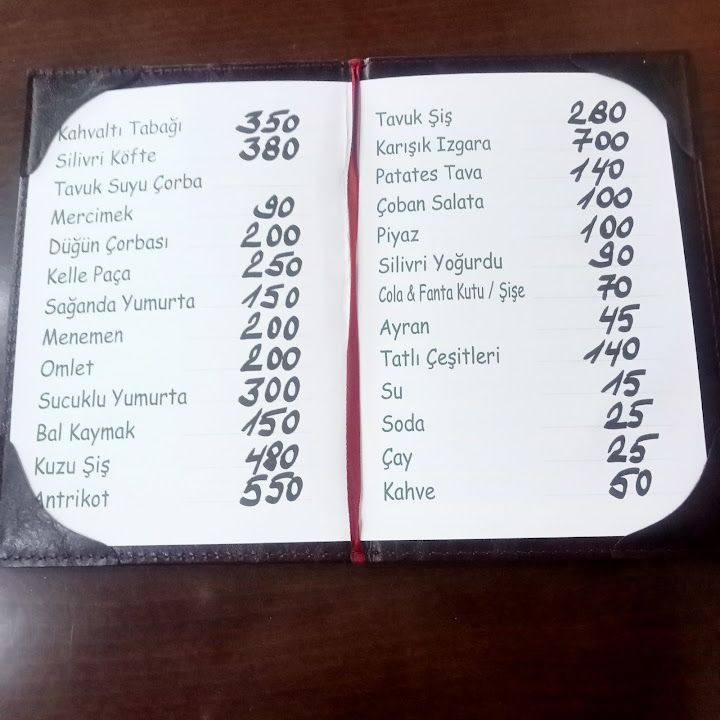 Kahvaltı Tabağı 350
Silivri Köfte 380
Tavuk Suyu Çorba
Mercimek 90
Düğün Çorbası 200
Kelle Paça 250
Sağanda Yumurta 150
Menemen 200
Omlet 200
Sucuklu Yumurta 300
Bal Kaymak 150
Kuzu Şiş 480
Antrikot 550
Tavuk Şiş 280
Karışık Izgara 700
Patates Tava 140
Çoban Salata 100
Piyaz 100
Silivri Yoğurdu 90
Cola & Fanta Kutu / Şişe 70
Ayran 45
Tatlı Çeşitleri 140
Su 15
Soda 25
Çay 25
Kahve 50